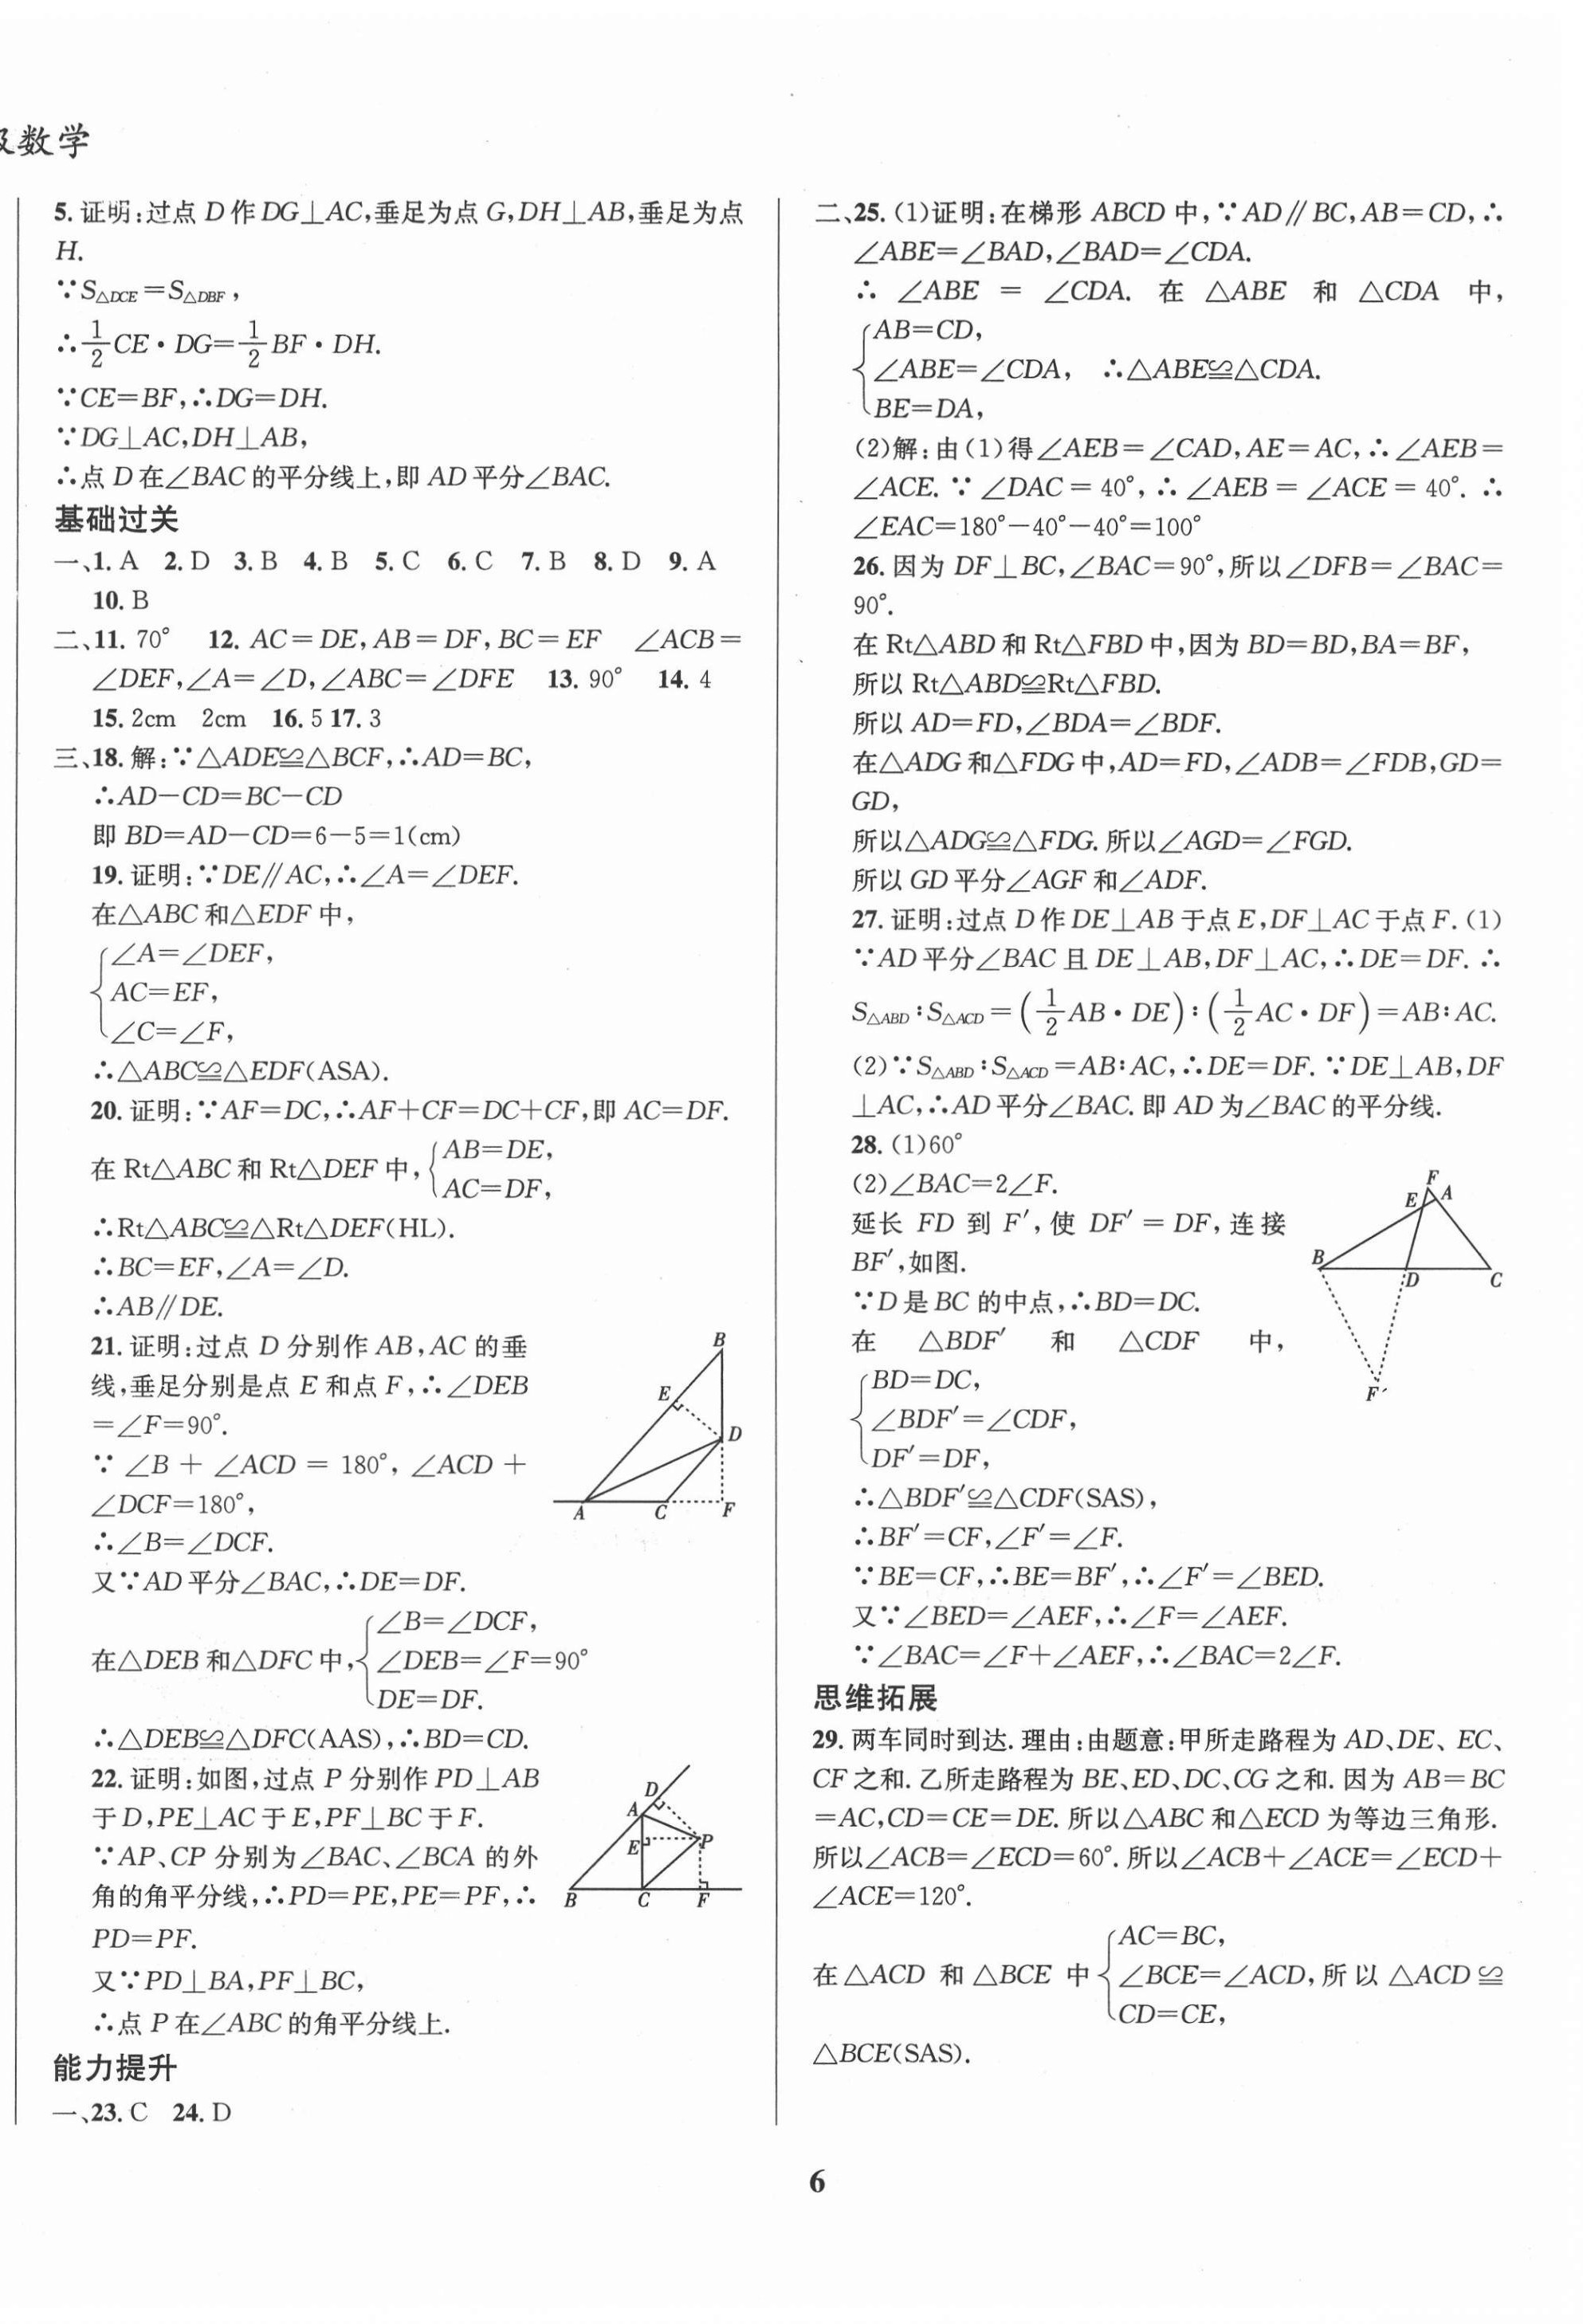 级数学
5. 证明:过点 D 作 DG⊥AC,垂足为点 G,DH⊥AB,垂足为点
H.
∵S△DCE=S△DBF,
∴1/2CE·DG=1/2BF·DH.
∵CE=BF,∴DG=DH.
∵DG⊥AC,DH⊥AB,
∴点 D 在∠BAC 的平分线上,即 AD 平分∠BAC.
基础过关
一、1. A 2. D 3. B 4. B 5. C 6. C 7. B 8. D 9. A
10. B
二、11. 70° 12. AC=DE,AB=DF,BC=EF ∠ACB=
∠DEF,∠A=∠D,∠ABC=∠DFE 13. 90° 14. 4
15. 2cm 2cm 16. 5 17. 3
三、18. 解:∵△ADE≌△BCF,∴AD=BC,
∴AD-CD=BC-CD
即 BD=AD-CD=6-5=1(cm)
19. 证明:∵DE∥AC,∴∠A=∠DEF.
在△ABC 和△EDF 中,
∠A=∠DEF,
AC=EF,
∠C=∠F,
∴△ABC≌△EDF(ASA).
20. 证明:∵AF=DC,∴AF+CF=DC+CF,即 AC=DF.
在 Rt△ABC 和 Rt△DEF 中,{AB=DE,
AC=DF,
∴Rt△ABC≌△Rt△DEF(HL).
∴BC=EF,∠A=∠D.
∴AB∥DE.
21. 证明:过点 D 分别作 AB,AC 的垂
线,垂足分别是点 E 和点 F,∴∠DEB
=∠F=90°.
∵∠B+∠ACD=180°,∠ACD+
∠DCF=180°,
∴∠B=∠DCF.
又∵AD 平分∠BAC,∴DE=DF.
∠B=∠DCF,
在△DEB 和△DFC 中,{∠DEB=∠F=90°
DE=DF.
∴△DEB≌△DFC(AAS),∴BD=CD.
B
E
D
A
C
F
22. 证明:如图,过点 P 分别作 PD⊥AB
于 D,PE⊥AC 于 E,PF⊥BC 于 F.
∵AP、CP 分别为∠BAC、∠BCA 的外
角的角平分线,∴PD=PE,PE=PF,∴
PD=PF.
又∵PD⊥BA,PF⊥BC,
∴点 P 在∠ABC 的角平分线上.
D
A
E
P
B
C
F
能力提升
一、23. C 24. D
二、25. (1)证明:在梯形 ABCD 中,∵AD∥BC,AB=CD,∴
∠ABE=∠BAD,∠BAD=∠CDA.
∴ ∠ABE = ∠CDA. 在 △ABE 和 △CDA 中,
AB=CD,
∠ABE=∠CDA, ∴△ABE≌△CDA.
BE=DA,
(2)解:由(1)得∠AEB=∠CAD,AE=AC,∴∠AEB=
∠ACE. ∵∠DAC=40°,∴∠AEB=∠ACE=40°. ∴
∠EAC=180°-40°-40°=100°
26. 因为 DF⊥BC,∠BAC=90°,所以∠DFB=∠BAC=
90°.
在 Rt△ABD 和 Rt△FBD 中,因为 BD=BD,BA=BF,
所以 Rt△ABD≌Rt△FBD.
所以 AD=FD,∠BDA=∠BDF.
在△ADG 和△FDG 中,AD=FD,∠ADB=∠FDB,GD=
GD,
所以△ADG≌△FDG. 所以∠AGD=∠FGD.
所以 GD 平分∠AGF 和∠ADF.
27. 证明:过点 D 作 DE⊥AB 于点 E,DF⊥AC 于点 F. (1)
∵AD 平分∠BAC 且 DE⊥AB,DF⊥AC,∴DE=DF. ∴
S△ABD∶S△ACD=(1/2AB·DE)∶(1/2AC·DF)=AB∶AC.
(2)∵S△ABD∶S△ACD=AB∶AC,∴DE=DF. ∵DE⊥AB,DF
⊥AC,∴AD 平分∠BAC. 即 AD 为∠BAC 的平分线.
28. (1)60°
(2)∠BAC=2∠F.
延长 FD 到 F′,使 DF′=DF,连接
BF′,如图.
∵D 是 BC 的中点,∴BD=DC.
在 △BDF′ 和 △CDF 中,
BD=DC,
∠BDF′=∠CDF,
DF′=DF,
∴△BDF′≌△CDF(SAS),
∴BF′=CF,∠F′=∠F.
∵BE=CF,∴BE=BF′,∴∠F′=∠BED.
又∵∠BED=∠AEF,∴∠F=∠AEF.
∵∠BAC=∠F+∠AEF,∴∠BAC=2∠F.
F
E
A
B
D
C
F′
思维拓展
29. 两车同时到达. 理由:由题意:甲所走路程为 AD、DE、EC、
CF 之和. 乙所走路程为 BE、ED、DC、CG 之和. 因为 AB=BC
=AC,CD=CE=DE. 所以△ABC 和△ECD 为等边三角形.
所以∠ACB=∠ECD=60°. 所以∠ACB+∠ACE=∠ECD+
∠ACE=120°.
AC=BC,
在△ACD 和△BCE 中{∠BCE=∠ACD,所以△ACD≌
CD=CE,
△BCE(SAS).
6